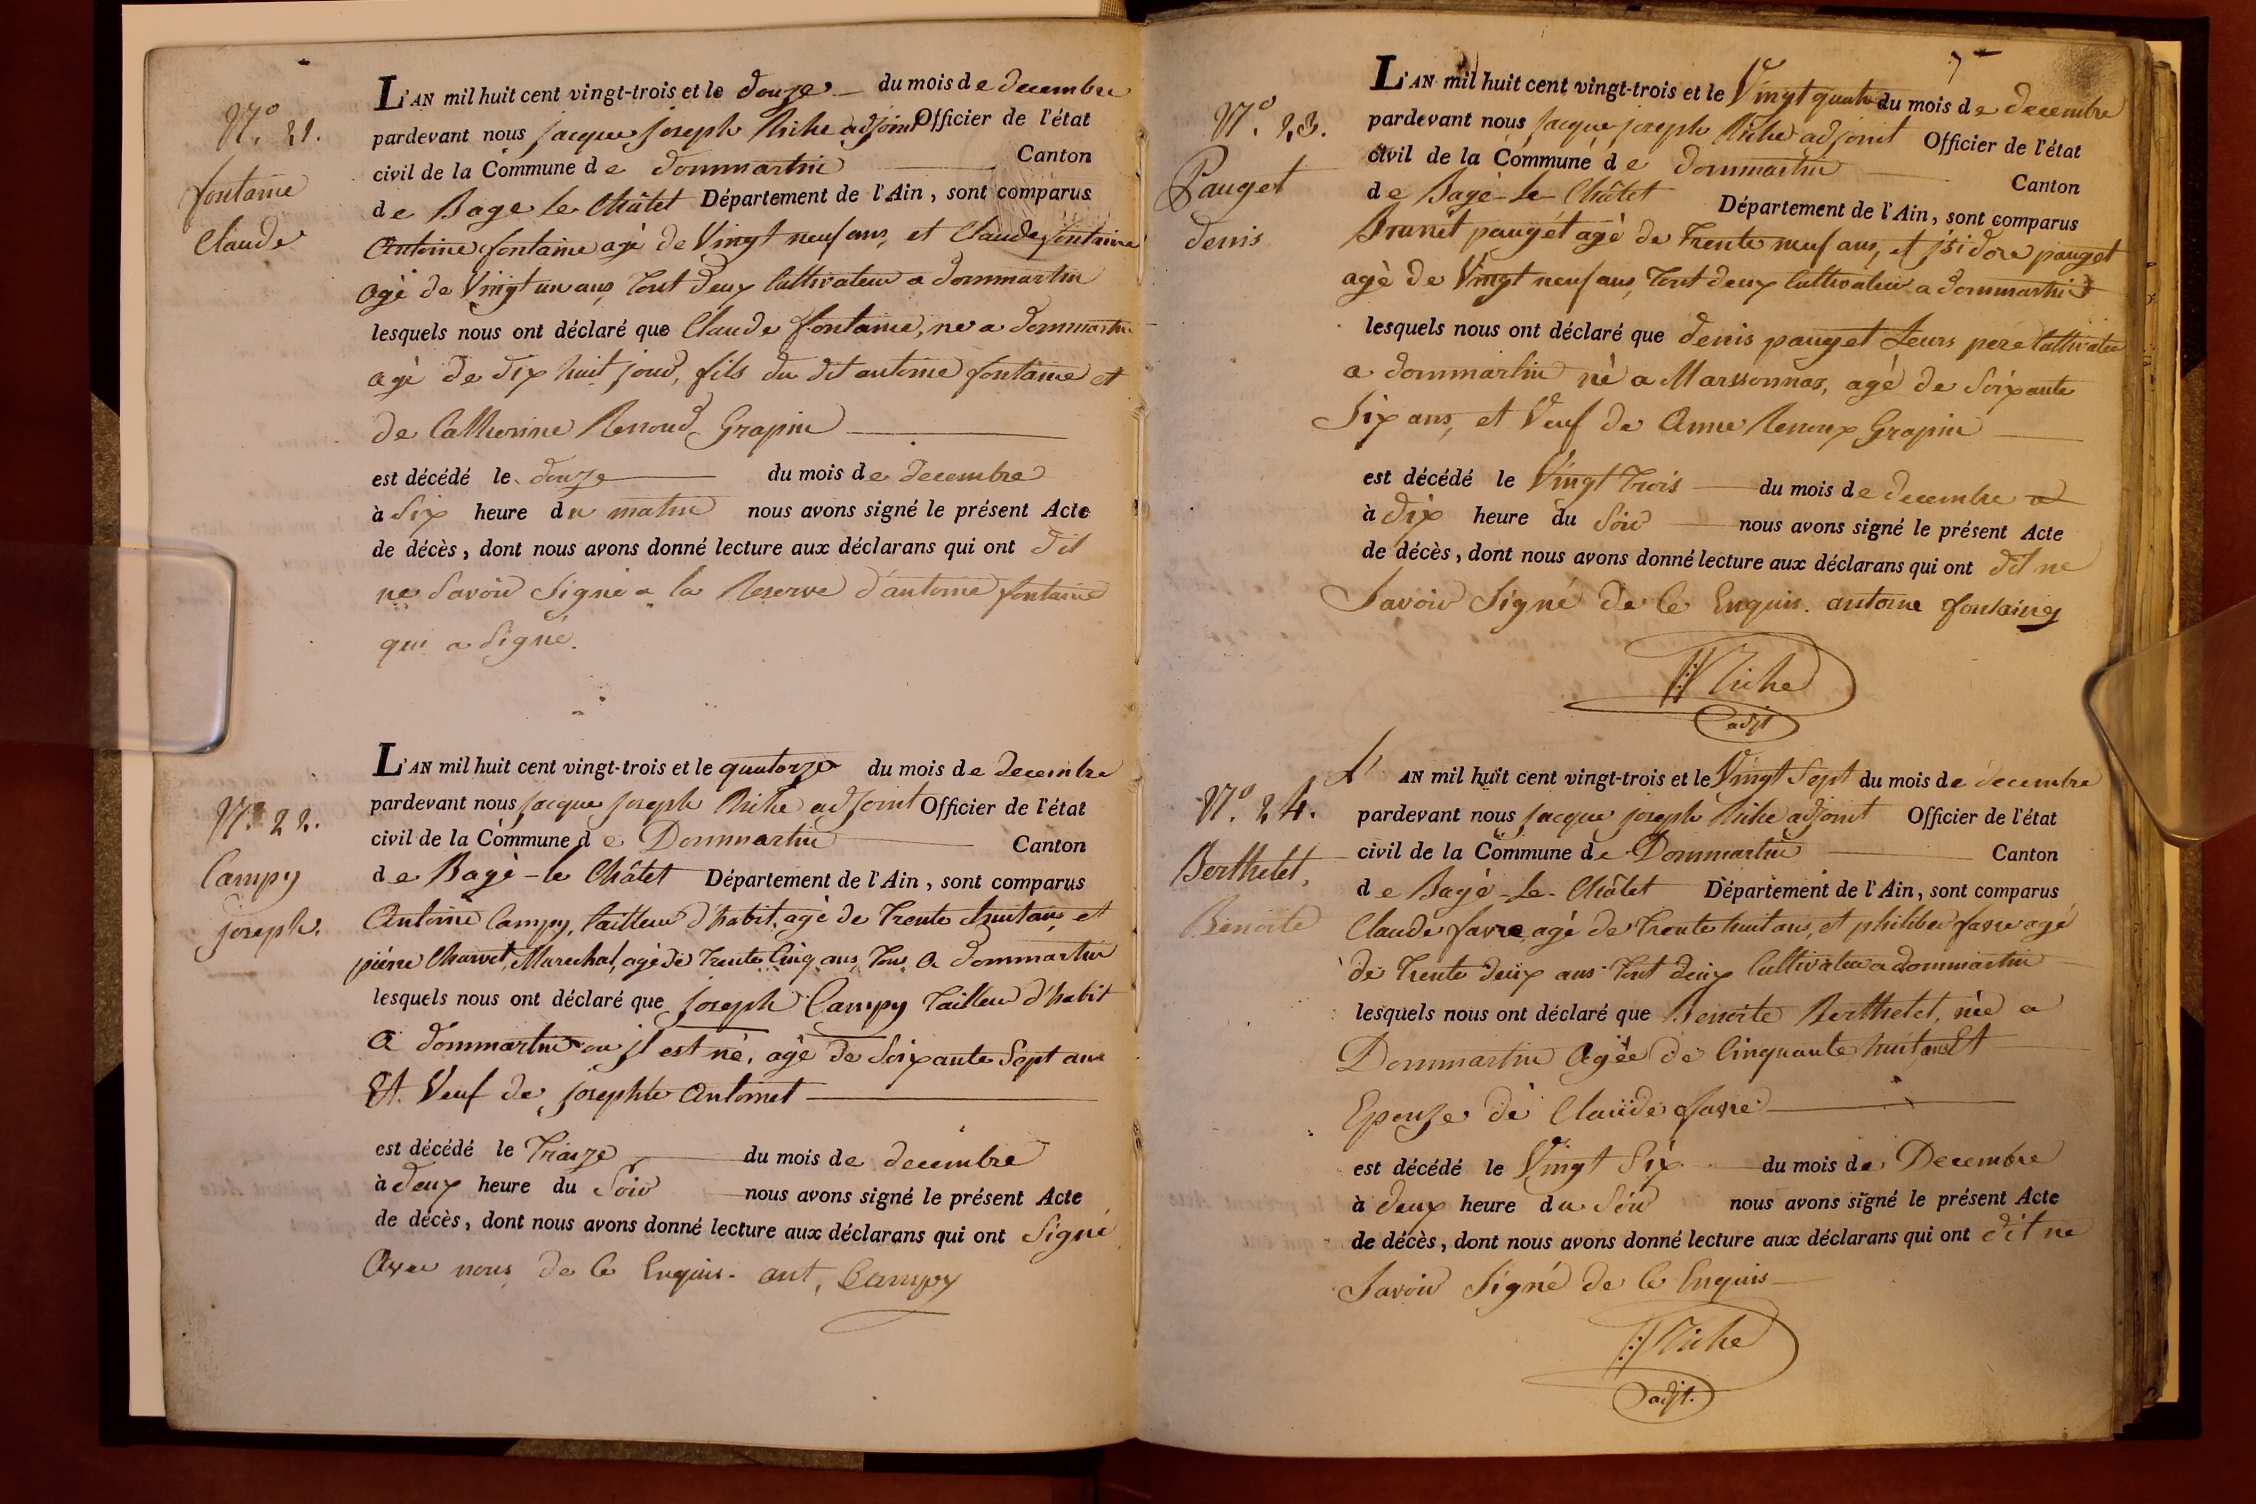 N.o 21.
fontaine
Claude
L'AN mil huit cent vingt-trois et le douze du mois de decembre
pardevant nous jacque joseph Riche adjoint Officier de l'état
civil de la Commune de dommartin Canton
de Bage le Châtet Département de l'Ain, sont comparus
Antoine fontaine agè de Vingt neuf ans, et Claude fontaine
agè de Vingt un ans, tout deux Cultivateur a dommartin
lesquels nous ont déclaré que Claude fontaine, ne a dommartin
agè de dix huit jour, fils du dit antoine fontaine et
de Catherinne Renoud Grapin
est décédé le douze du mois de decembre
à Six heure du matin nous avons signé le présent Acte
de décès, dont nous avons donné lecture aux déclarans qui ont dit
ne Savoir Signé a la Reserve d'antoine fontaine
qui a Signé.
N.o 22.
Campy
joseph.
L'AN mil huit cent vingt-trois et le quatorze du mois de decembre
pardevant nous jacque joseph Riche adjoint Officier de l'état
civil de la Commune de Dommartin Canton
de Bagè-le Châtet Département de l'Ain, sont comparus
Antoine Campy, tailleur d'habit, agè de trente huit ans, et
pierre Charvet, Marechal, agè de trente Cinq ans, tous a dommartin
lesquels nous ont déclaré que joseph Campy tailleur d'habit
a dommartin ou jl est nè, agè de Soixante Sept ans
Et Veuf de josephte Antoinet
est décédé le traize du mois de decembre
à deux heure du Soir nous avons signé le présent Acte
de décès, dont nous avons donné lecture aux déclarans qui ont Signé
Avec nous de Ce Enquis. ant, Campy
7
N.o 23.
Pauget
denis
L'AN mil huit cent vingt-trois et le Vingt quatre du mois de decembre
pardevant nous jacque joseph Riche adjoint Officier de l'état
civil de la Commune de dommartin Canton
de Bagè-le-Châtet Département de l'Ain, sont comparus
Brunet paugét agè de trente neuf ans, et jsidore pauget
agè de Vingt neuf ans, tout deux Cultivateur a dommartin
lesquels nous ont déclaré que denis pauget Leurs pere Cultivateur
a dommartin nè a Marssonnas, agé de Soixante
Six ans, et Veuf de Anne Renoux Grapin
est décédé le Vingt trois du mois de decembre a
à dix heure du Soir nous avons signé le présent Acte
de décès, dont nous avons donné lecture aux déclarans qui ont dit ne
Savoir Signé de Ce Enquis. antoine fontaine
Riche
adjt
N.o 24.
Berthelet,
Benoite
L'AN mil huit cent vingt-trois et le Vingt Sept du mois de decembre
pardevant nous jacque joseph Riche adjoint Officier de l'état
civil de la Commune de Dommartin Canton
de Bagè-Le-Châtet Département de l'Ain, sont comparus
Claude favre, agé de trente huit ans, et philiber favre agé
de trente deux ans tout deux Cultivateur a dommartin
lesquels nous ont déclaré que Benoite Berthelet, née a
Dommartin Agèe de Cinquante huit ans Et
Epouze de Claude favre
est décédé le Vingt Six du mois de Decembre
à deux heure du Soir nous avons signé le présent Acte
de décès, dont nous avons donné lecture aux déclarans qui ont dit ne
Savoir Signé de Ce Enquis
Riche
adjt.